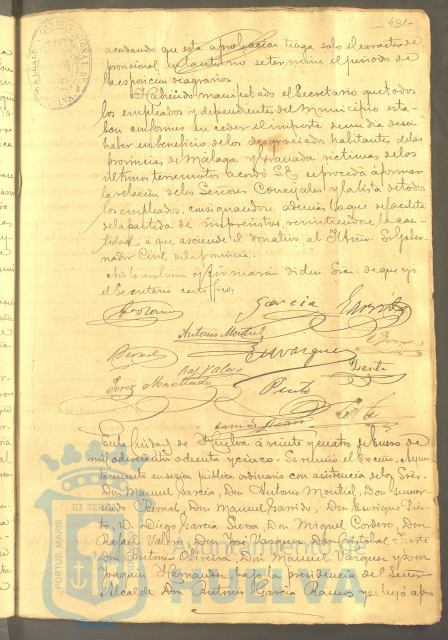 431
acordando que esta aprobacion tenga solo el caracter de
provisional en tanto no se termine el periodo de
la esposicion de agravios.
Habiendo manifestado el Secretario que todos
los empleados y dependientes del Municipio esta-
ban conformes en ceder el importe de un dia de su
haber en beneficio de los desgraciados habitantes de las
provincias de Málaga y Granada victimas de los
últimos terremotos acordó S.E. se proceda á formar
la relacion de los Señores Concejales y la lista de todos
los empleados, consignandose ademas lo que se facilite
de la partida de imprevistos, remitiendose la can-
tidad á que asciende el donativo al Iltmo. Sr. Gober-
nador Civil de la provincia.
Asi lo acordaron y firmarán dichos Sres. de que yo
el Secretario certifico.
García Garrido
Antonio Montiel
Bernal E. Vazquez
Raf. Valero
Perez Machado Pinto
En la Ciudad de Huelva á veinte y cuatro de Enero de
mil ochocientos ochenta y cinco. Se reunió el Excmo. Ayun-
tamiento en sesion pública ordinaria con asistencia de los Sres.
Don Manuel Garcia, Don Antonio Montiel, Don Gumer-
sindo Bernal, Don Manuel Garrido, Don Enrique Pin-
to, D. Diego Garcia Serra, Don Miguel Cordero, Don
Rafael Valero, Don José Vazquez, Don Cristobal
Don Antonio Oliveira, Don Manuel Vazquez y Don
Joaquin Hernandez bajo la presidencia del Señor
Alcalde Don Antonio Garcia Ramos y se dió
PORTUS MARIS
ET TERRAE
Ayuntamiento de
HUELVA